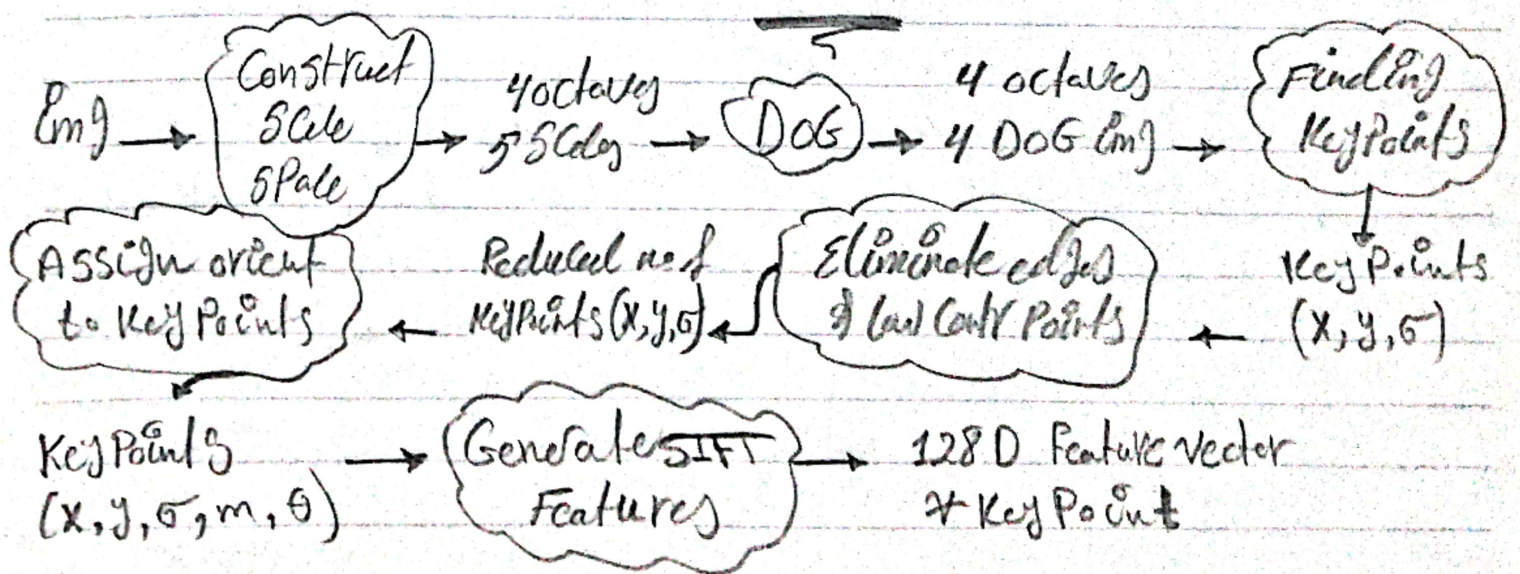 Img → Construct Scale Space → 4 octaves 5 Scales → DOG → 4 octaves 4 DOG img → Finding KeyPoints
KeyPoints (x, y, σ) ← Eliminate edges & low Contr Points ← Reduced no of KeyPoints (x, y, σ) ← Assign orient to KeyPoints
KeyPoints (x, y, σ, m, θ) → Generate SIFT Features → 128 D Feature vector
* KeyPoint